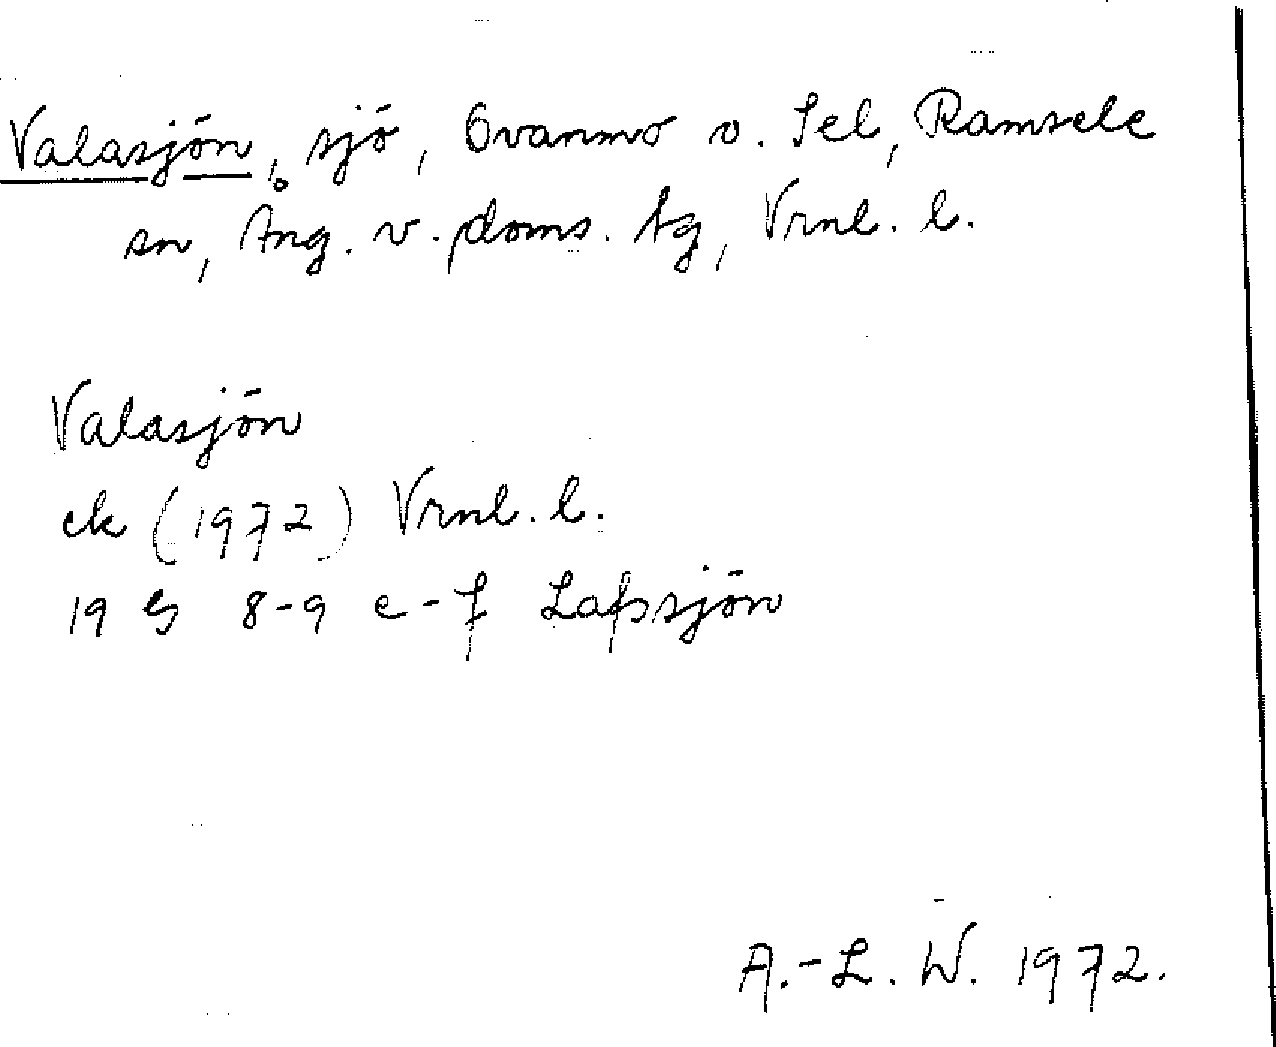 Valasjön, sjö, Ovanmo o. Sel, Ramsele
sn, Ång. v. doms. tg, Vrnl. l.
Valasjön
ek (1972) Vrnl. l.
19 G 8-9 e-f Lafssjön
A.-L. W. 1972.